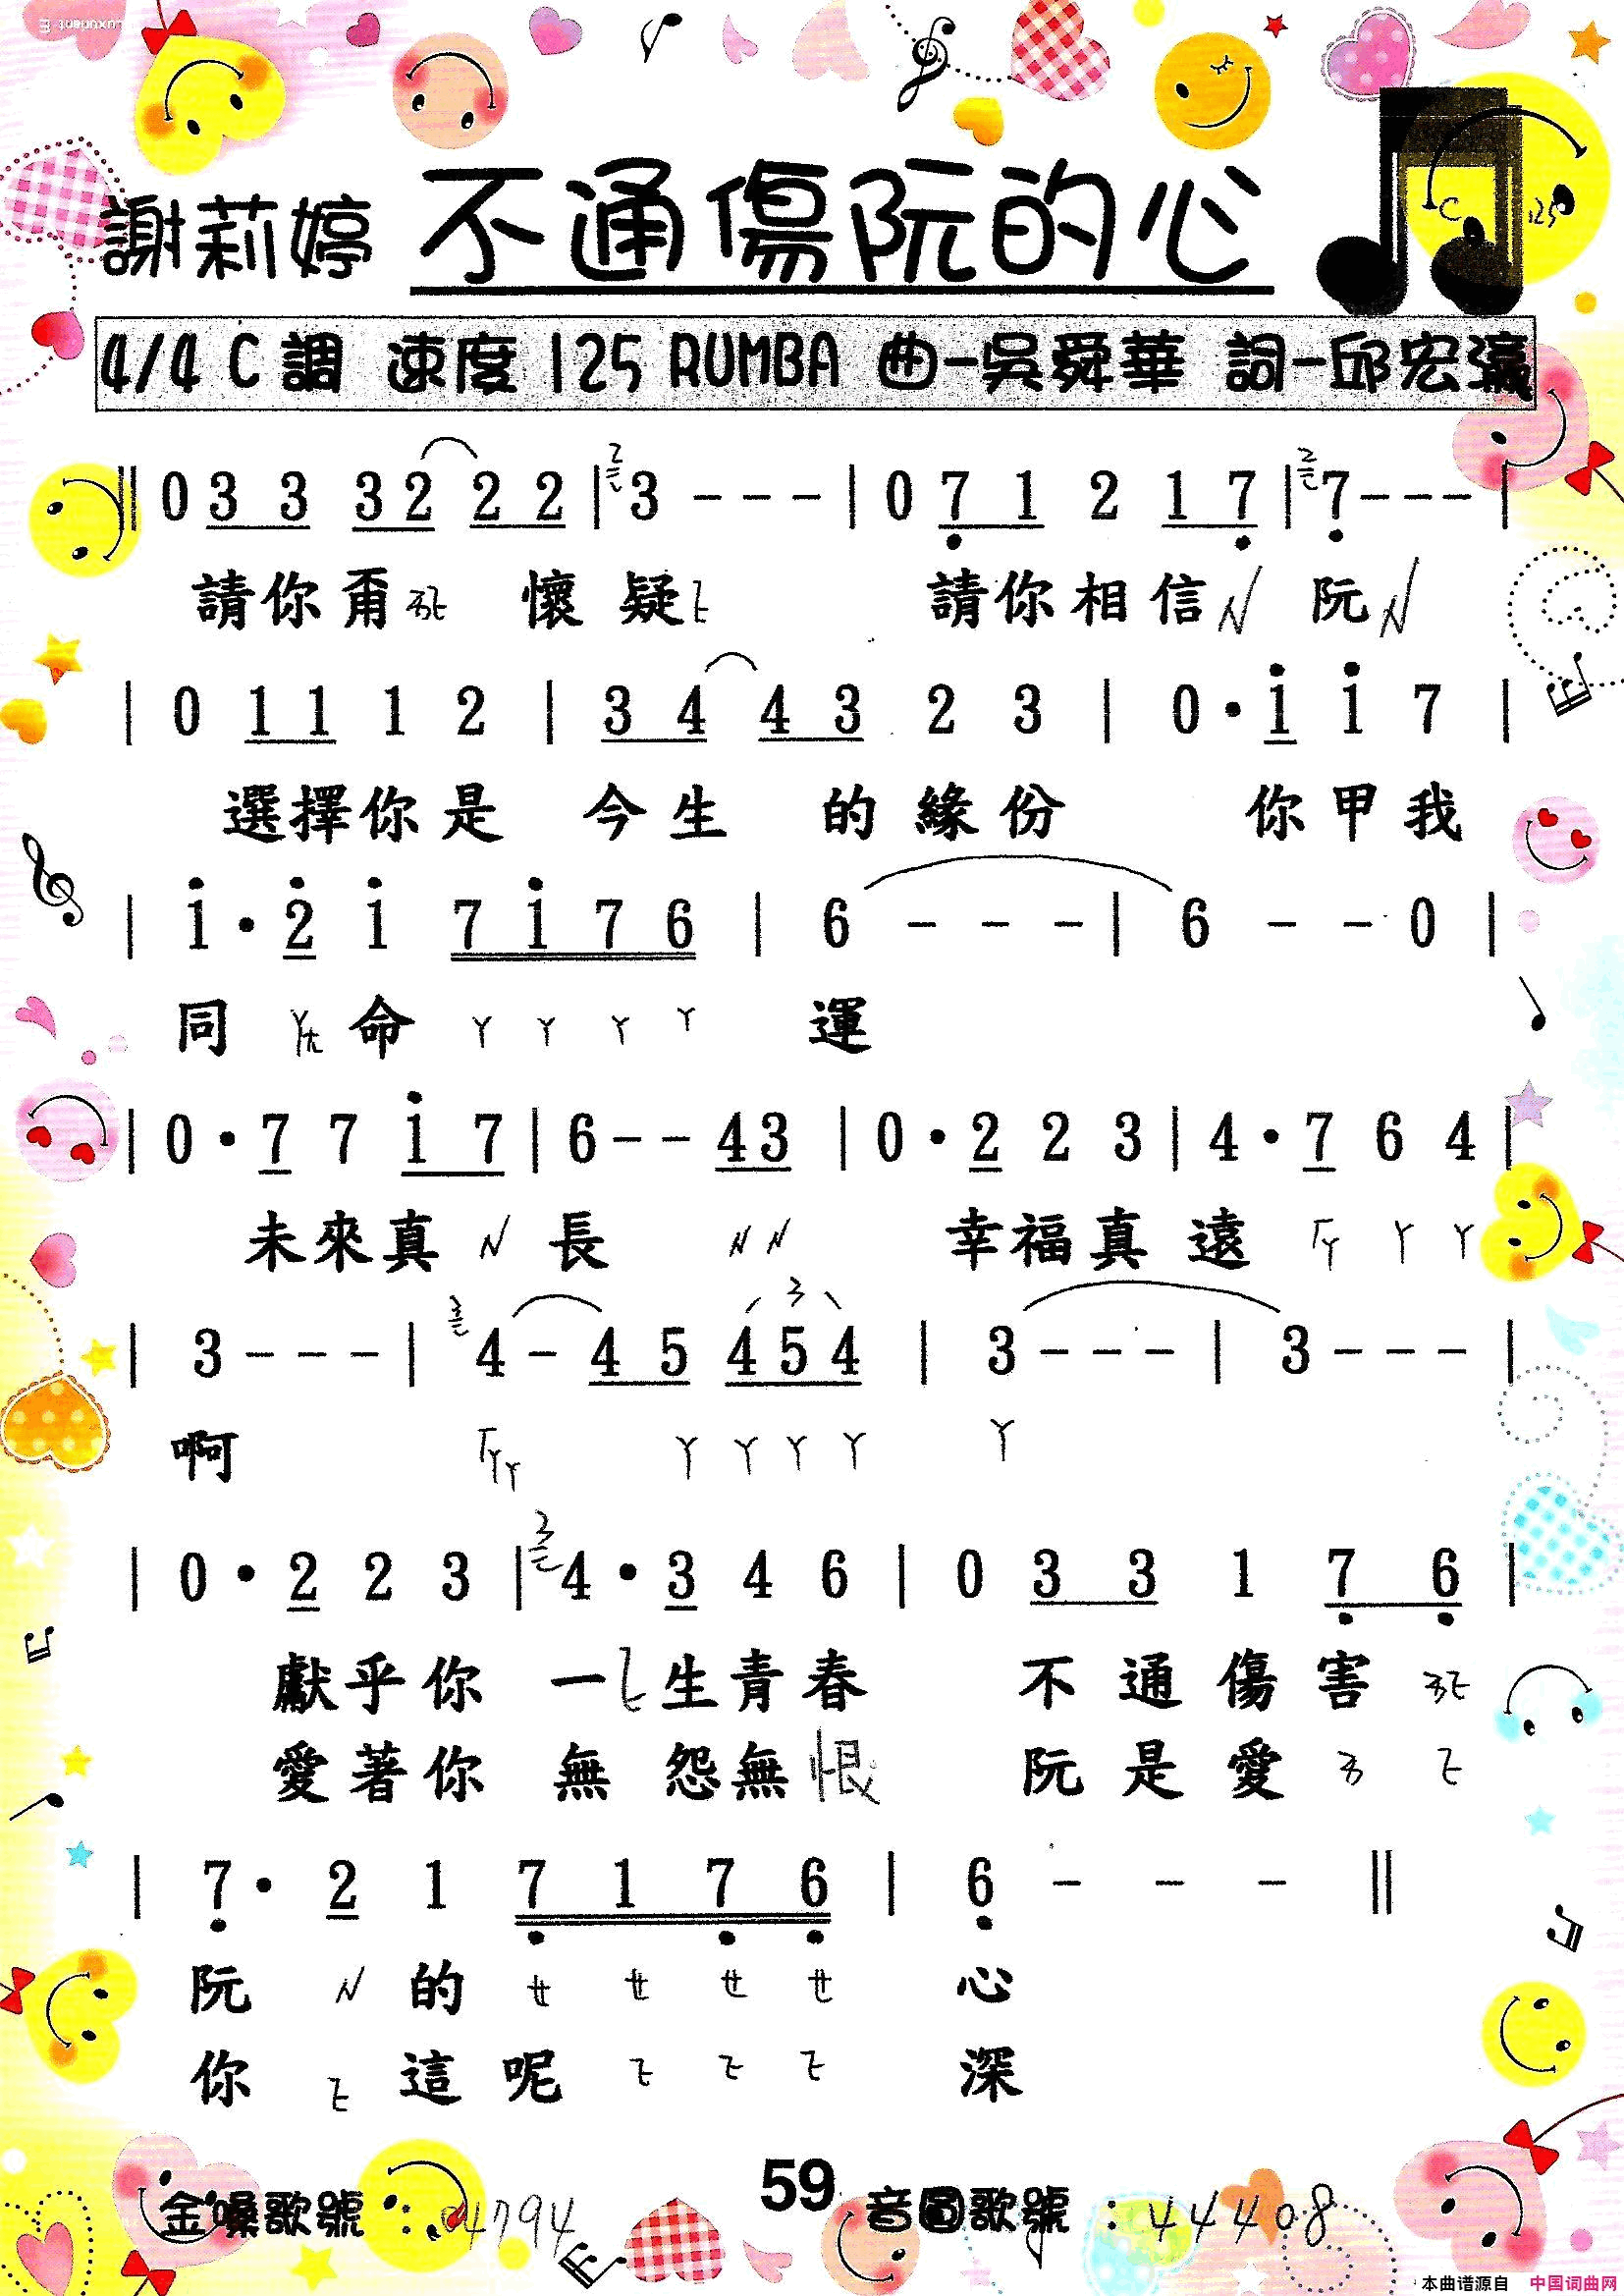 謝莉婷 不通傷阮的心
C 125
4/4 C調 速度125 RUMBA 曲-吳舜華 詞-邱宏瀛
‖ 0 3 3 3 2 2 2 | 3 - - - | 0 7 1 2 1 7 | 7 - - - |
請你甭ㄞㄜ 懷疑ㄜ 請你相信ㄣ 阮ㄣ
| 0 1 1 1 2 | 3 4 4 3 2 3 | 0 · i i 7 |
選擇你是 今生 的緣份 你甲我
| i · 2 i 7 i 7 6 | 6 - - - | 6 - - 0 |
同 命 ㄚ ㄚ ㄚ ㄚ 運
| 0 · 7 7 i 7 | 6 - - 4 3 | 0 · 2 2 3 | 4 · 7 6 4 |
未來真 ㄣ 長 ㄣ ㄣ 幸福真 遠 ㄏㄚ ㄚ ㄚ
| 3 - - - | 4 - 4 5 4 5 4 | 3 - - - | 3 - - - |
啊 ㄏㄚㄚ ㄚ ㄚ ㄚ ㄚ ㄚ
| 0 · 2 2 3 | 4 · 3 4 6 | 0 3 3 1 7 6 |
獻乎你 一 生青春 不通傷害
愛著你 無 怨無恨 阮是愛
| 7 · 2 1 7 1 7 6 | 6 - - - ‖
阮 ㄣ 的 ㄝ ㄝ ㄝ ㄝ 心
你 這呢 深
金嗓歌號 : 04794
59
音圓歌號 : 44408
本曲谱源自 中国词曲网